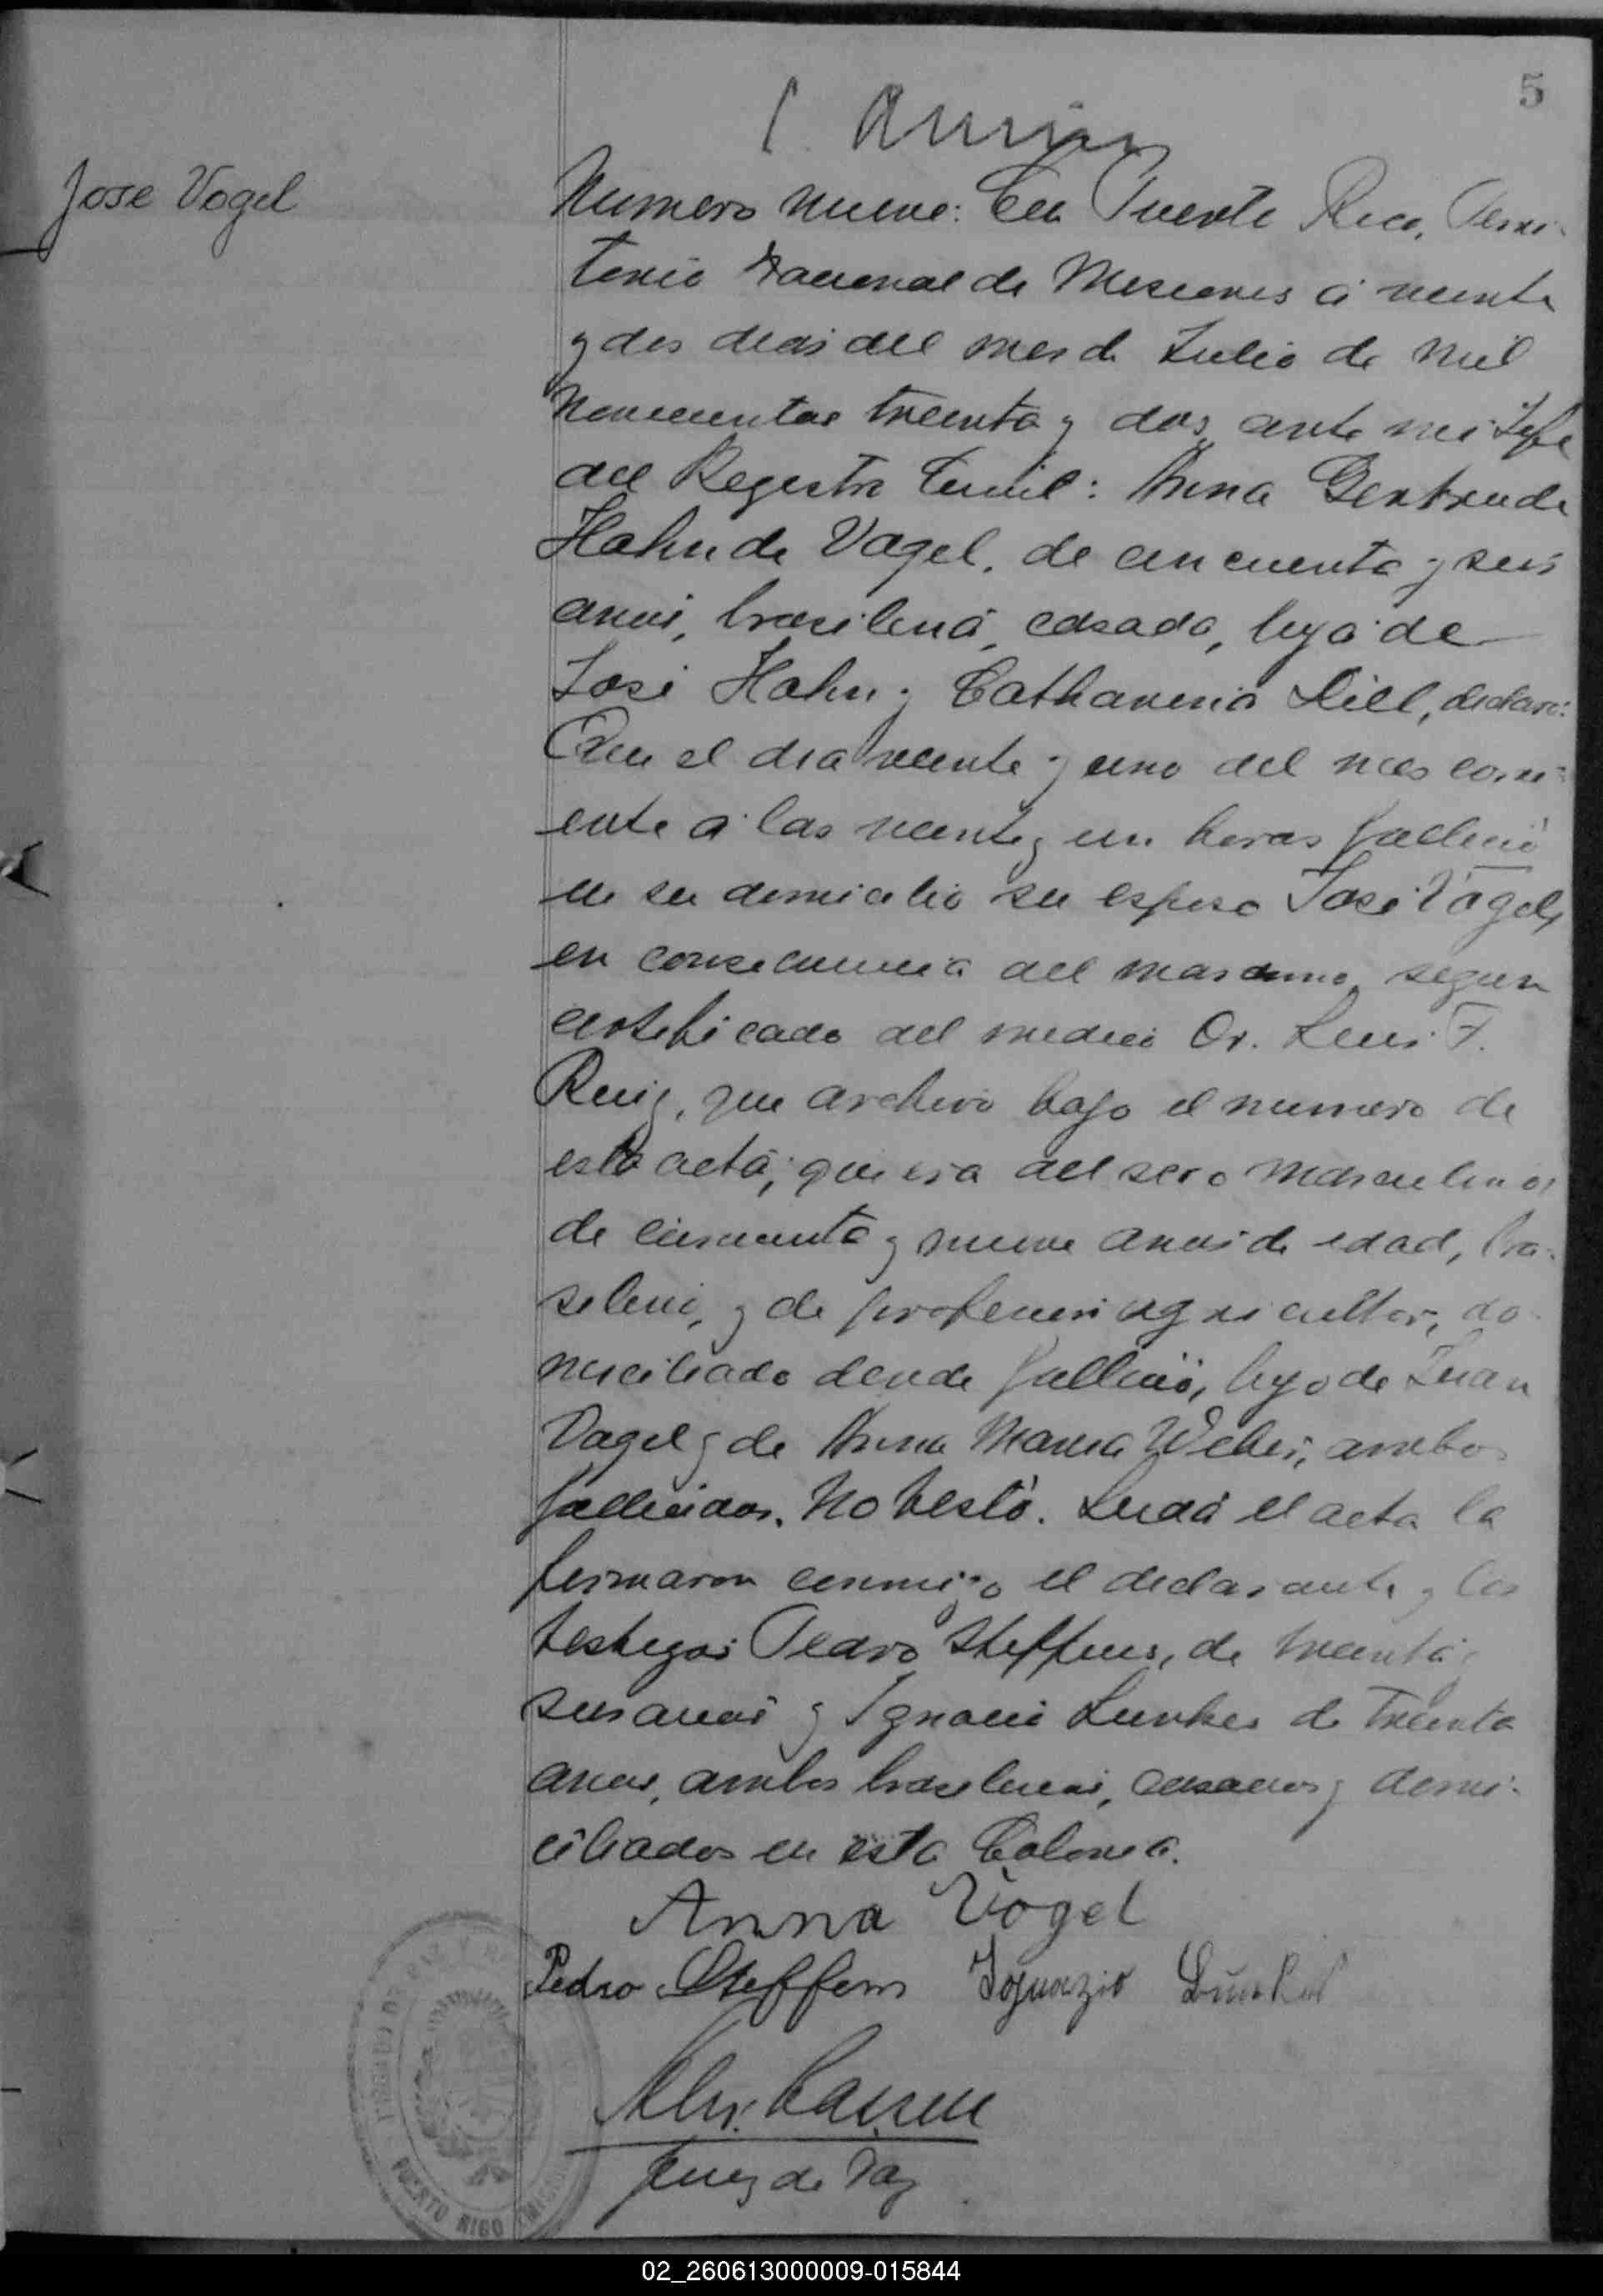 5
Jose Vogel
Numero nueve: En Puerto Rico, Terri-
torio Nacional de Misiones á veinte
y dos dias del mes de Julio de mil
novecientos treinta y dos, ante mi Jefe
del Registro Civil: Anna Gertrude
Hahn de Vogel, de cincuenta y seis
anos, brasilena, casada, hija de
José Hahn y Catharina Dill, declaró:
Que el dia veinte y uno del mes corri-
ente a las veinte y un horas falleció
en su domicilio su esposo José Vogel,
en consecuencia del segun
certificado del medico Dr. Luis F.
Ruiz, que archivo bajo el numero de
esta acta; que era del sexo masculino,
de cincuenta y nueve anos de edad, bra-
sileno, y de profesion agricultor, do-
miciliado donde falleció, hijo de Juan
Vogel y de Anna Maria Weber, ambos
fallecidos. No testó. Leida el acta la
firmaron conmigo el declarante y los
testigos Pedro Steffens, de treinta y
seis anos y Ignacio Lunkes de treinta
anos, ambos brasilenos, casados y domi-
ciliados en esta Colonia.
Anna Vogel
Pedro Steffens Ignazio
Juez de Paz
JUZGADO DE PAZ Y
PUERTO RICO (MISIONES)
02_260613000009-015844